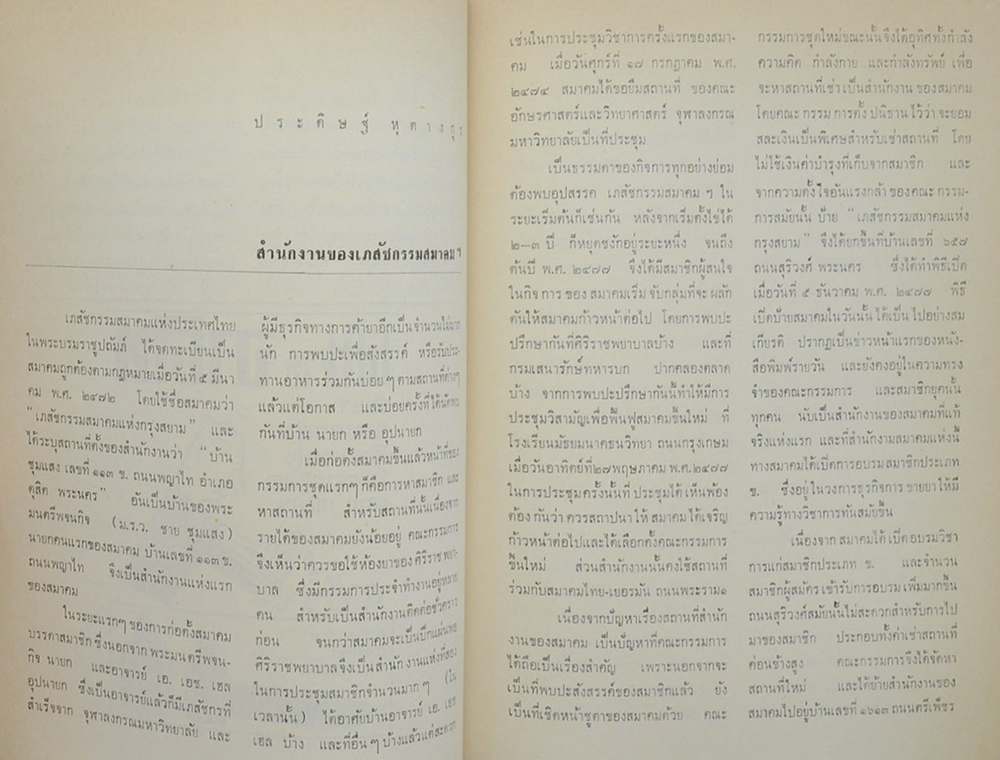 ประดิษฐ์ หุตางกูร
สำนักงานของเภสัชกรรมสมาคม ฯ
เภสัชกรรมสมาคมแห่งประเทศไทย
ในพระบรมราชูปถัมภ์ ได้จดทะเบียนเป็น
สมาคมถูกต้องตามกฎหมายเมื่อวันที่ ๕ มีนา
คม พ.ศ. ๒๔๗๒ โดยใช้ชื่อสมาคมว่า
“เภสัชกรรมสมาคมแห่งกรุงสยาม” และ
ได้ระบุสถานที่ตั้งของสำนักงานว่า “บ้าน
ชุมแสง เลขที่ ๑๑๓ ข. ถนนพญาไท อำเภอ
ดุสิต พระนคร” อันเป็นบ้านของพระ
มนตรีพจนกิจ (ม.ร.ว. ชาย ชุมแสง)
นายกคนแรกของสมาคม บ้านเลขที่ ๑๑๓ ข.
ถนนพญาไท จึงเป็นสำนักงานแห่งแรก
ของสมาคม
ในระยะแรกๆ ของการก่อตั้งสมาคม
บรรดาสมาชิก ซึ่งนอกจาก พระมนตรีพจน-
กิจ นายก และอาจารย์ เอ. เอช. เฮล
อุปนายก ซึ่งเป็นอาจารย์แล้วก็มีเภสัชกรที่
สำเร็จจาก จุฬาลงกรณมหาวิทยาลัย และ
ผู้มีธุรกิจทางการค้ายาอีกเป็นจำนวนไม่มาก
นัก การพบปะเพื่อสังสรรค์ หรือรับประ-
ทานอาหารร่วมกันบ่อยๆ ตามสถานที่ต่างๆ
แล้วแต่โอกาส และบ่อยครั้งที่ได้นัดพบ
กันที่บ้าน นายก หรือ อุปนายก
เมื่อก่อตั้งสมาคมขึ้นแล้วหน้าที่ของ
กรรมการชุดแรกๆ ก็คือการหาสมาชิก และ
หาสถานที่ สำหรับสถานที่นั้นเนื่องจาก
รายได้ของสมาคมยังน้อยอยู่ คณะกรรมการ
จึงเห็นว่าควรขอใช้ห้องยาของ ศิริราช พยา-
บาล ซึ่งมีกรรมการประจำทำงานอยู่หลาย
คน สำหรับเป็นสำนักงานติดต่อชั่วคราว
ก่อน จนกว่าสมาคมจะเป็นปึกแผ่นพอ
ศิริราชพยาบาลจึงเป็นสำนักงานแห่งที่สอง
ในการประชุมสมาชิกจำนวนมากๆ (ใน
เวลานั้น) ได้อาศัยบ้านอาจารย์ เอ. เอช
เฮล บ้าง และที่อื่นๆ บ้างแล้วแต่สะดวก
เช่นในการประชุมวิชาการครั้งแรกของสมา-
คม เมื่อวันศุกร์ที่ ๑๗ กรกฎาคม พ.ศ.
๒๔๗๔ สมาคมได้ขอยืมสถานที่ ของคณะ
อักษรศาสตร์และวิทยาศาสตร์ จุฬาลงกรณ
มหาวิทยาลัยเป็นที่ประชุม
เป็นธรรมดาของกิจการทุกอย่างย่อม
ต้องพบอุปสรรค เภสัชกรรมสมาคม ฯ ใน
ระยะเริ่มต้นก็เช่นกัน หลังจากเริ่มตั้งไข่ได้
๒—๓ ปี ก็หยุดชงักอยู่ระยะหนึ่ง จนถึง
ต้นปี พ.ศ. ๒๔๗๗ จึงได้มีสมาชิกผู้สนใจ
ในกิจ การ ของ สมาคมเริ่ม จับกลุ่มที่จะ ผลัก
ดันให้สมาคมก้าวหน้าต่อไป โดยการพบปะ
ปรึกษากันที่ศิริราชพยาบาลบ้าง และที่
กรมเสนารักษ์ทหารบก ปากคลองตลาด
บ้าง จากการพบปะปรึกษากันนี้ทำให้มีการ
ประชุมวิสามัญเพื่อฟื้นฟูสมาคมขึ้นใหม่ ที่
โรงเรียนมัธยมนาคธนวิทยา ถนนกรุงเกษม
เมื่อวันอาทิตย์ที่๒๗พฤษภาคม พ.ศ.๒๔๗๗
ในการประชุม ครั้งนั้นที่ ประชุมได้ เห็นพ้อง
ต้อง กันว่า ควรสถาปนา ให้ สมาคม ได้เจริญ
ก้าวหน้าต่อไปและได้เลือกตั้งคณะกรรมการ
ขึ้นใหม่ ส่วนสำนักงานนั้นคงใช้สถานที่
ร่วมกับสมาคมไทย-เยอรมัน ถนนพระราม๑
เนื่องจากปัญหาเรื่องสถานที่สำนัก
งานของสมาคม เป็นปัญหาที่คณะกรรมการ
ได้ถือเป็นเรื่องสำคัญ เพราะนอกจากจะ
เป็นที่พบปะสังสรรค์ของสมาชิกแล้ว ยัง
เป็นที่เชิดหน้าชูตาของสมาคมด้วย คณะ
กรรมการชุดใหม่ขณะนั้นจึงได้อุทิศทั้งกำลัง
ความคิด กำลังกาย และกำลังทรัพย์ เพื่อ
จะหาสถานที่เช่า เป็นสำนักงาน ของสมาคม
โดยคณะ กรรม การตั้ง ปนิธาน ไว้ว่า จะยอม
สละเงินเป็นพิเศษสำหรับเช่าสถานที่ โดย
ไม่ใช้เงินค่าบำรุงที่เก็บจากสมาชิก และ
จากความตั้งใจอันแรงกล้า ของคณะ กรรม-
การสมัยนั้น ป้าย “เภสัชกรรมสมาคมแห่ง
กรุงสยาม” จึงได้ยกขึ้นที่บ้านเลขที่ ๖๕๗
ถนนสุริวงศ์ พระนคร ซึ่งได้ทำพิธีเปิด
เมื่อวันที่ ๕ ธันวาคม พ.ศ. ๒๔๗๗ พิธี
เปิดป้ายสมาคมในวันนั้น ได้เป็น ไปอย่างสม
เกียรติ ปรากฏเป็นข่าวหน้าแรกของหนัง-
สือพิมพ์รายวัน และยังคงอยู่ในความทรง
จำของคณะกรรมการ และสมาชิกยุคนั้น
ทุกคน นับเป็นสำนักงานของสมาคมที่แท้
จริงแห่งแรก และที่สำนักงานสมาคมแห่งนี้
ทางสมาคมได้เปิดการอบรมสมาชิกประเภท
ข. ซึ่งอยู่ ในวงการธุรกิจการ ขายยา ให้มี
ความรู้ทางวิชาการทันสมัยขึ้น
เนื่องจาก สมาคม ได้ เปิด อบรมวิชา
การแก่สมาชิกประเภท ข. และจำนวน
สมาชิกผู้สมัคร เข้ารับการอบรม เพิ่มมากขึ้น
ถนนสุริวงศ์สมัยนั้นไม่สะดวกสำหรับการไป
มาของสมาชิก ประกอบทั้งค่าเช่าสถานที่
ค่อนข้างสูง คณะกรรมการจึงได้จัดหา
สถานที่ใหม่ และได้ย้ายสำนักงานของ
สมาคมไปอยู่บ้านเลขที่ ๑๖๑๓ ถนนตรีเพ็ชร